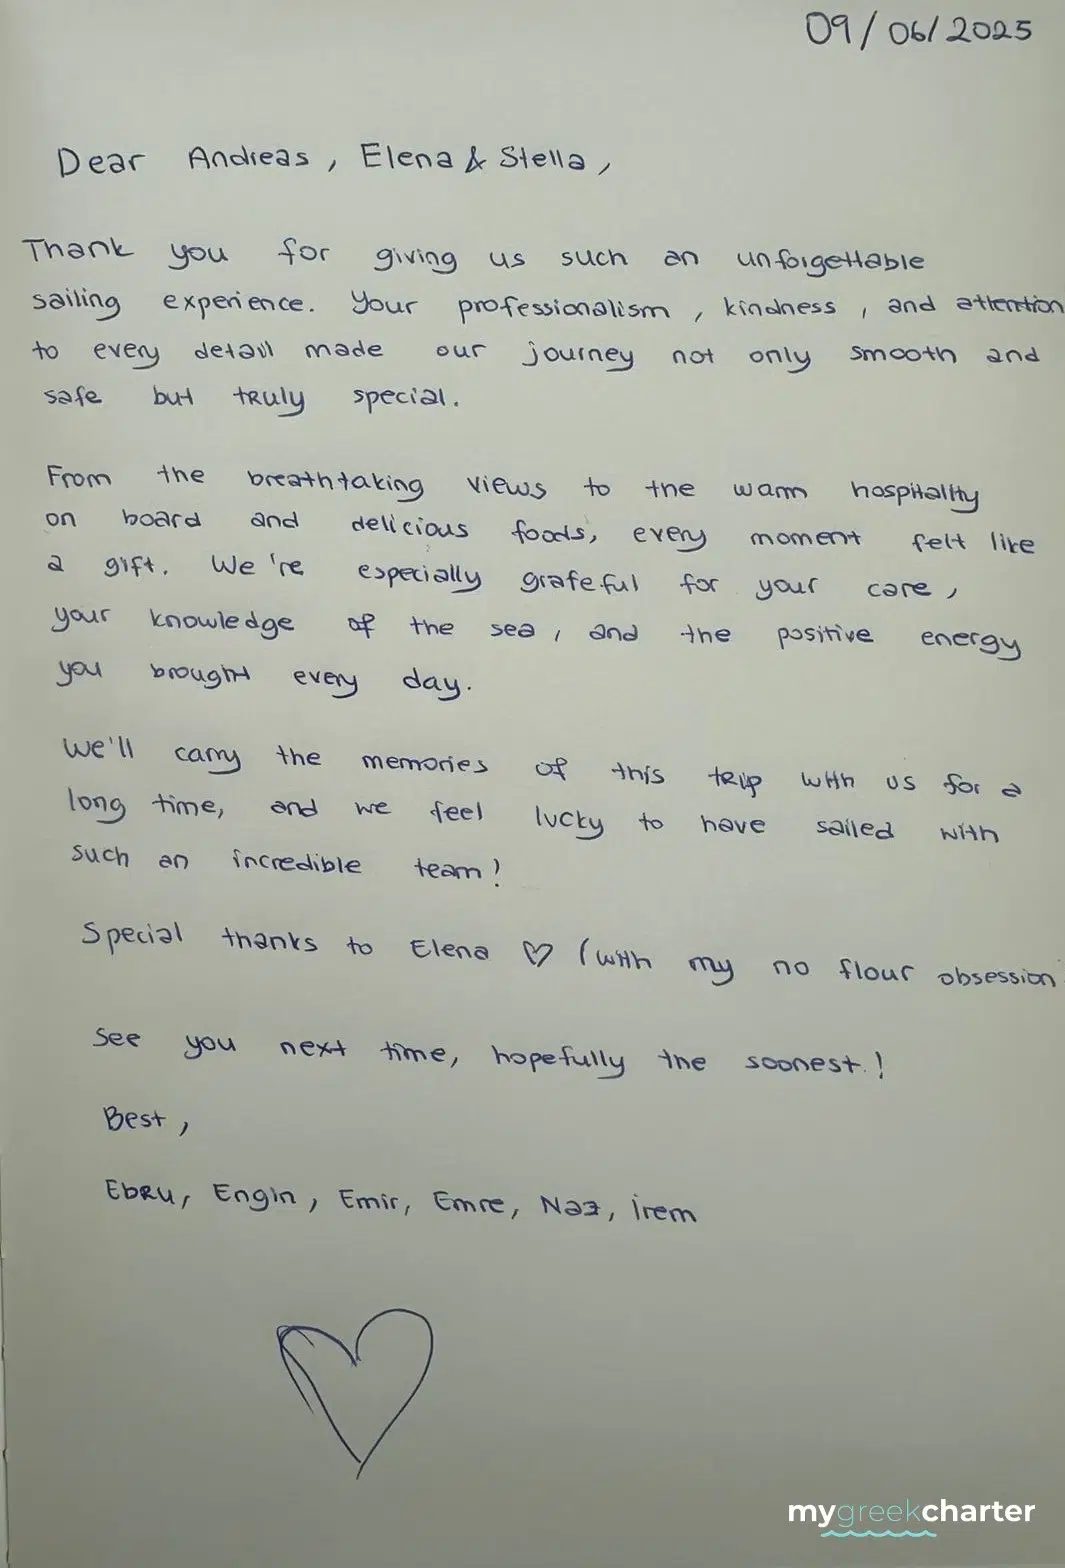 09/06/2025
Dear Andreas, Elena & Stella,
Thank you for giving us such an unforgettable
sailing experience. Your professionalism, kindness, and attention
to every detail made our journey not only smooth and
safe but truly special.
From the breathtaking views to the warm hospitality
on board and delicious foods, every moment felt like
a gift. We're especially grateful for your care,
your knowledge of the sea, and the positive energy
you brought every day.
We'll carry the memories of this trip with us for a
long time, and we feel lucky to have sailed with
such an incredible team!
Special thanks to Elena ♡ (with my no flour obsession
See you next time, hopefully the soonest!
Best,
Ebru, Engin, Emir, Emre, Naz, İrem
mygreekcharter